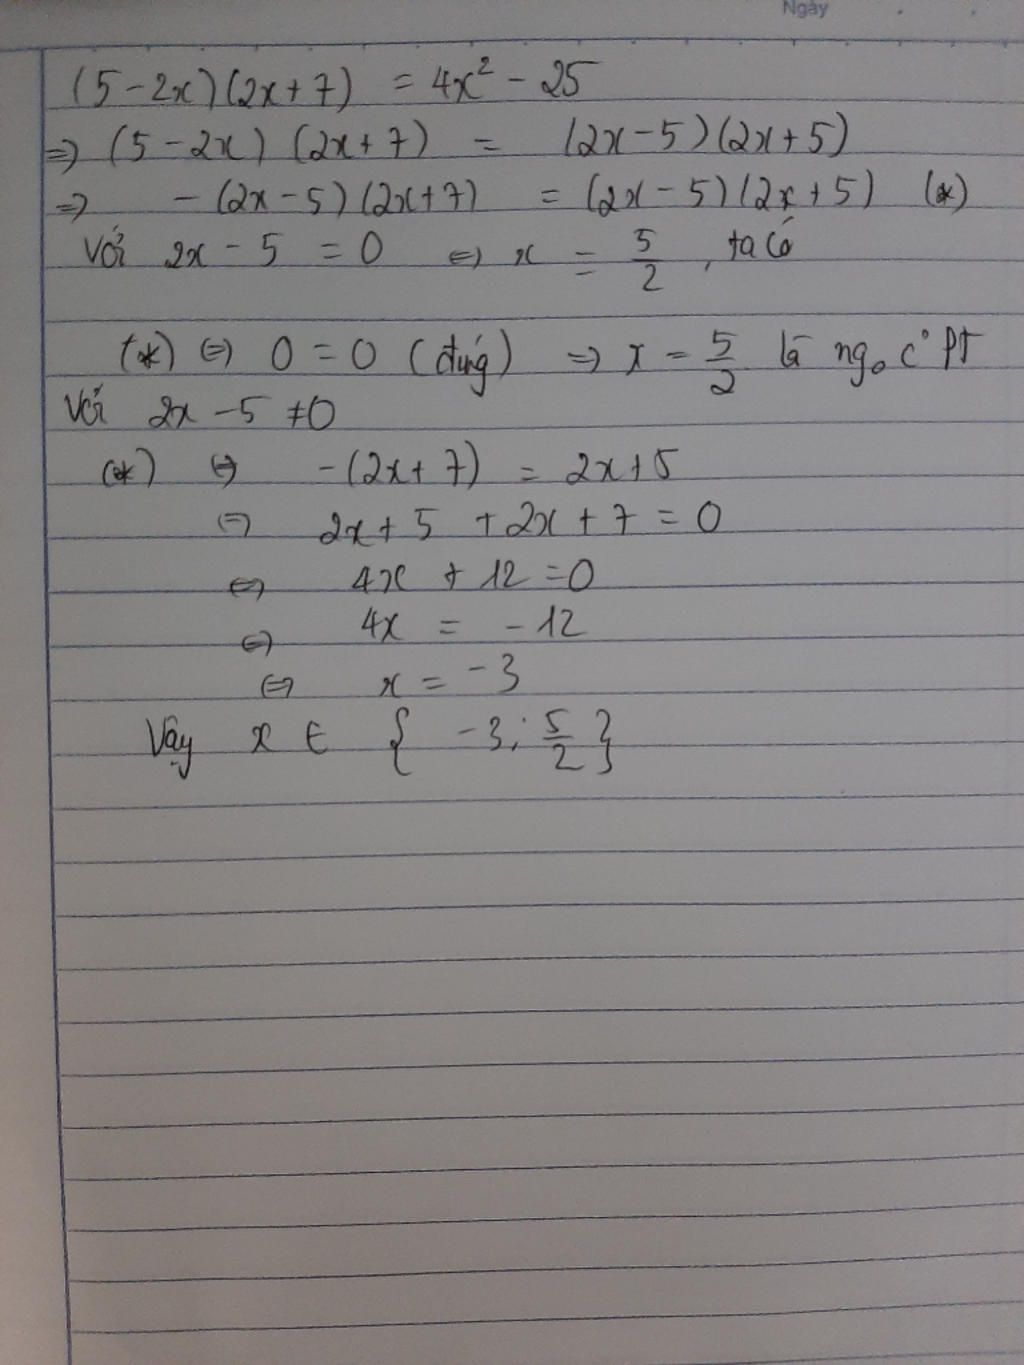 Ngày
(5 - 2x)(2x + 7) = 4x² - 25
=> (5 - 2x) (2x + 7) = (2x - 5)(2x + 5)
=> - (2x - 5)(2x + 7) = (2x - 5)(2x + 5) (*)
Với 2x - 5 = 0 <=> x = 5/2, ta có
(*) <=> 0 = 0 (đúng) => x = 5/2 là ng₀ c° PT
Với 2x - 5 ≠ 0
(*) <=> -(2x + 7) = 2x + 5
<=> 2x + 5 + 2x + 7 = 0
<=> 4x + 12 = 0
<=> 4x = - 12
<=> x = -3
Vậy x ∈ { -3; 5/2 }